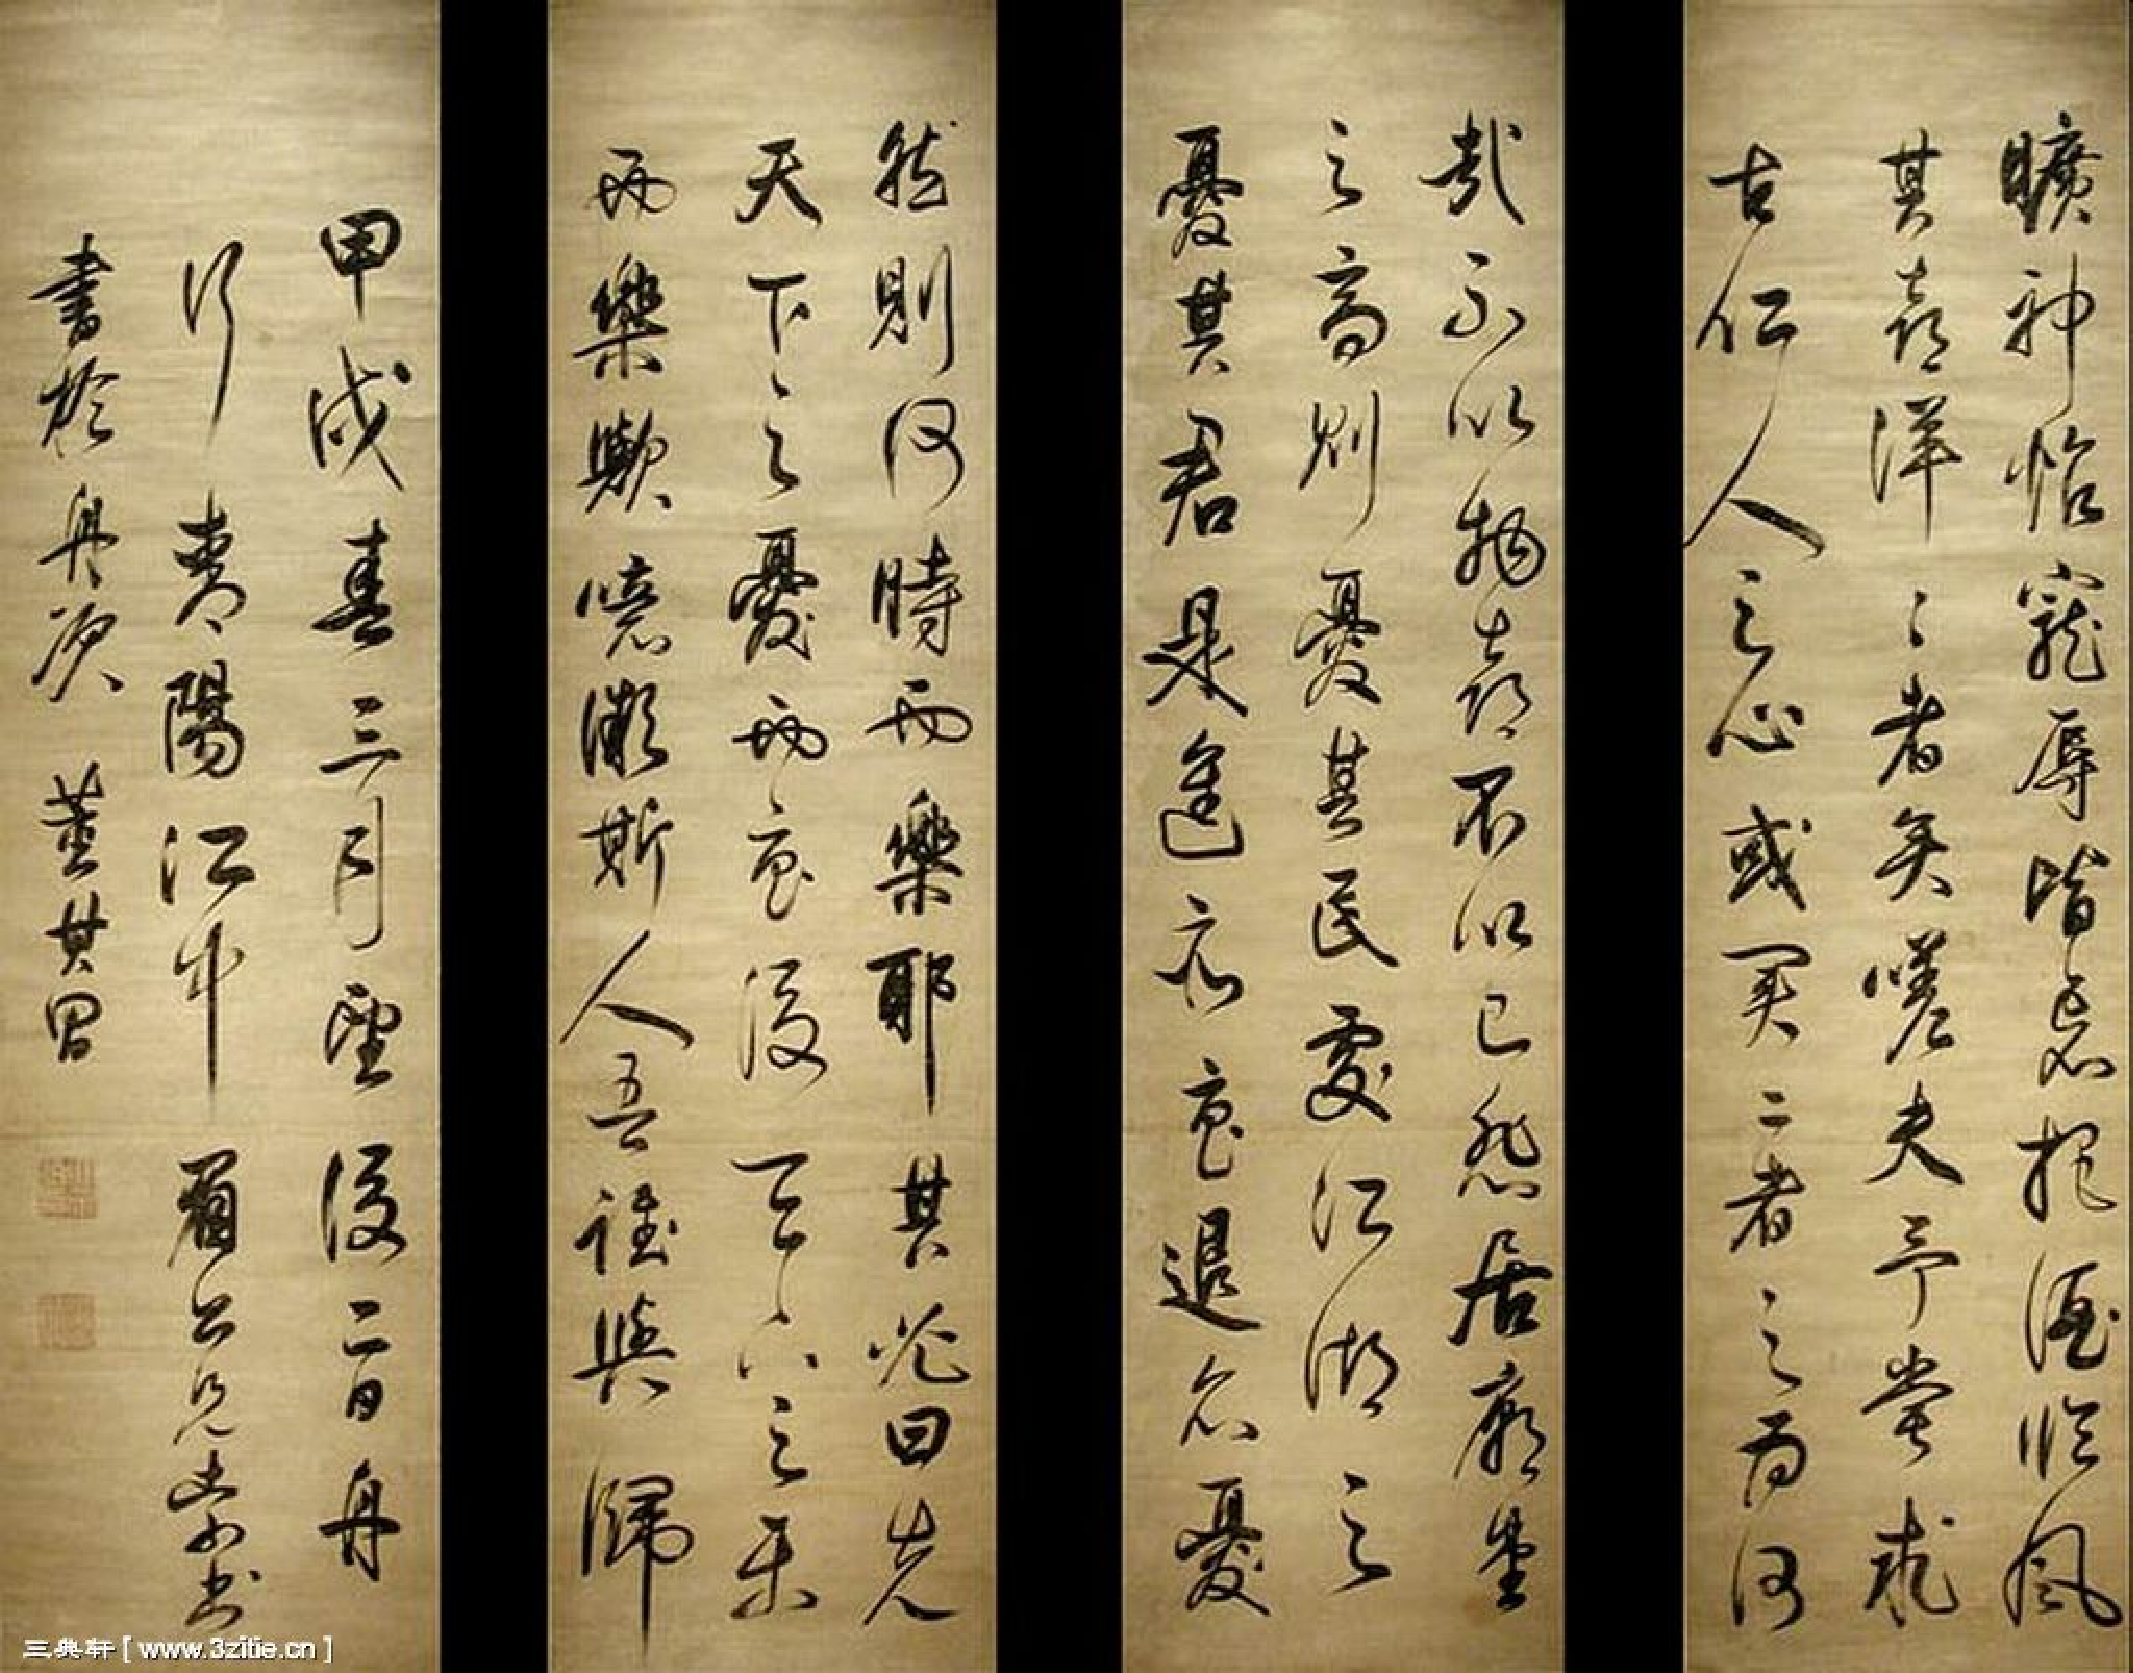 曠神怡寵辱皆忘把酒臨風
其喜洋〻者矣嗟夫予嘗求
古仁人之心或異二者之為何
哉不以物喜不以己悲居廟堂
之高則憂其民處江湖之
憂其君是進亦憂退亦憂
然則何時而樂耶其必曰先
天下之憂而憂後天下之樂
而樂歟噫微斯人吾誰與歸
甲戌春三月望後二日舟
行陽江中眉公兄索書
書於舟次 董其昌
三典轩 [ www.3zitie.cn ]